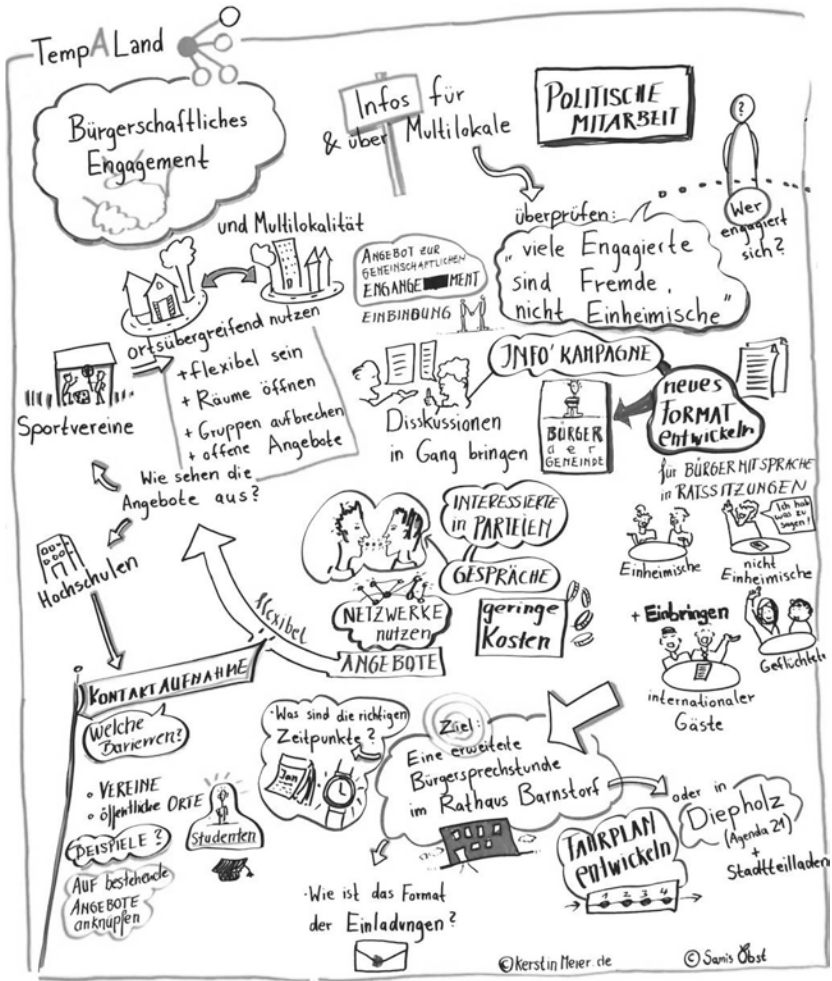 TempALand
Bürgerschaftliches
Engagement
und Multilokalität
Infos für
& über Multilokale
POLITISCHE
MITARBEIT
?
Wer
engagiert
sich?
überprüfen:
"viele Engagierte
sind Fremde,
nicht Einheimische"
ANGEBOT ZUR
GEMEINSCHAFTLICHEN
ENGANGE MENT
EINBINDUNG
ortsübergreifend nutzen
+ flexibel sein
+ Räume öffnen
+ Gruppen aufbrechen
+ offene Angebote
Sportvereine
Wie sehen die
Angebote aus?
Hochschulen
INFO'KAMPAGNE
Disskussionen
in Gang bringen
BÜRGER
der
GEMEINDE
neues
FORMAT
entwickeln
für BÜRGERMITSPRACHE
in RATSSITZUNGEN
Einheimische
Ich hab
was zu
sagen!
nicht
Einheimische
+ Einbringen
internationaler
Gäste
Geflüchtete
INTERESSIERTE
in PARTEIEN
GESPRÄCHE
NETZWERKE
nutzen
geringe
Kosten
flexibel
ANGEBOTE
KONTAKTAUFNAHME
Welche
Barieren?
• VEREINE
• öffentliche ORTE
BEISPIELE?
AUF bestehende
ANGEBOTE
anknüpfen
Studenten
• Was sind die richtigen
Zeitpunkte?
Jan
Ziel:
Eine erweiterte
Bürgersprechstunde
im Rathaus Barnstorf
oder in
Diepholz
(Agenda 21)
+
Stadtteilladen
FAHRPLAN
entwickeln
1 2 3 4
• Wie ist das Format
der Einladungen?
©KerstinMeier.de
© Samis Obst